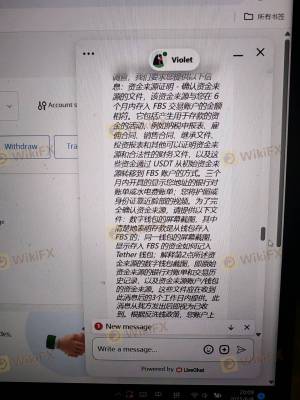 所有书签
Violet
Account s
Withdraw
Tra
调查，我们要求您提供以下信
息：资金来源证明 - 确认资金来
源的文件，该资金来源与您在 6
个月内存入 FBS 交易账户的金额
相符。它包括产生用于存款的资
金的活动，例如纳税申报表、雇
佣合同、销售合同、继承文件、
投资报表和其他可以证明资金来
源和合法性的财务文件，以及这
些资金通过 USDT 从初始资金来
源转移到 FBS 账户的方式。三个
月内开具的显示您地址的银行对
账单或水电费账单；您将护照或
身份证靠近脸部的视频。为了完
全确认资金来源，请提供以下文
件：数字钱包的屏幕截图，其中
清楚地表明存款是从钱包存入
FBS 的，同一钱包的屏幕截图，
显示存入 FBS 的资金如何记入
Tether 钱包；解释第2点所述资
金来源的数字钱包截图，即原始
资金来源的银行对账单和交易历
史记录，以及资金来源账户/钱包
的资金来源。这些文件应在收到
此消息后的3个工作日内提供。此
消息从我方发出后即视为已收
到。根据反洗钱政策，您账户上
1 New message
Write a message...
Powered by LiveChat
WikiFX
WikiFX
WikiFX
WikiFX
WikiFX
中
20:09